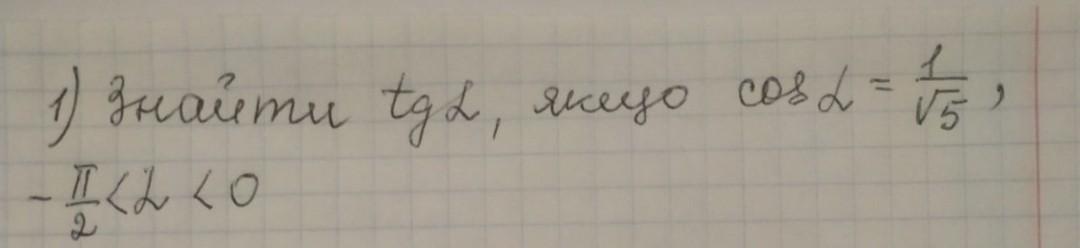 1) Знайти tg α, якщо cos α = 1/√5,
- π/2 < α < 0